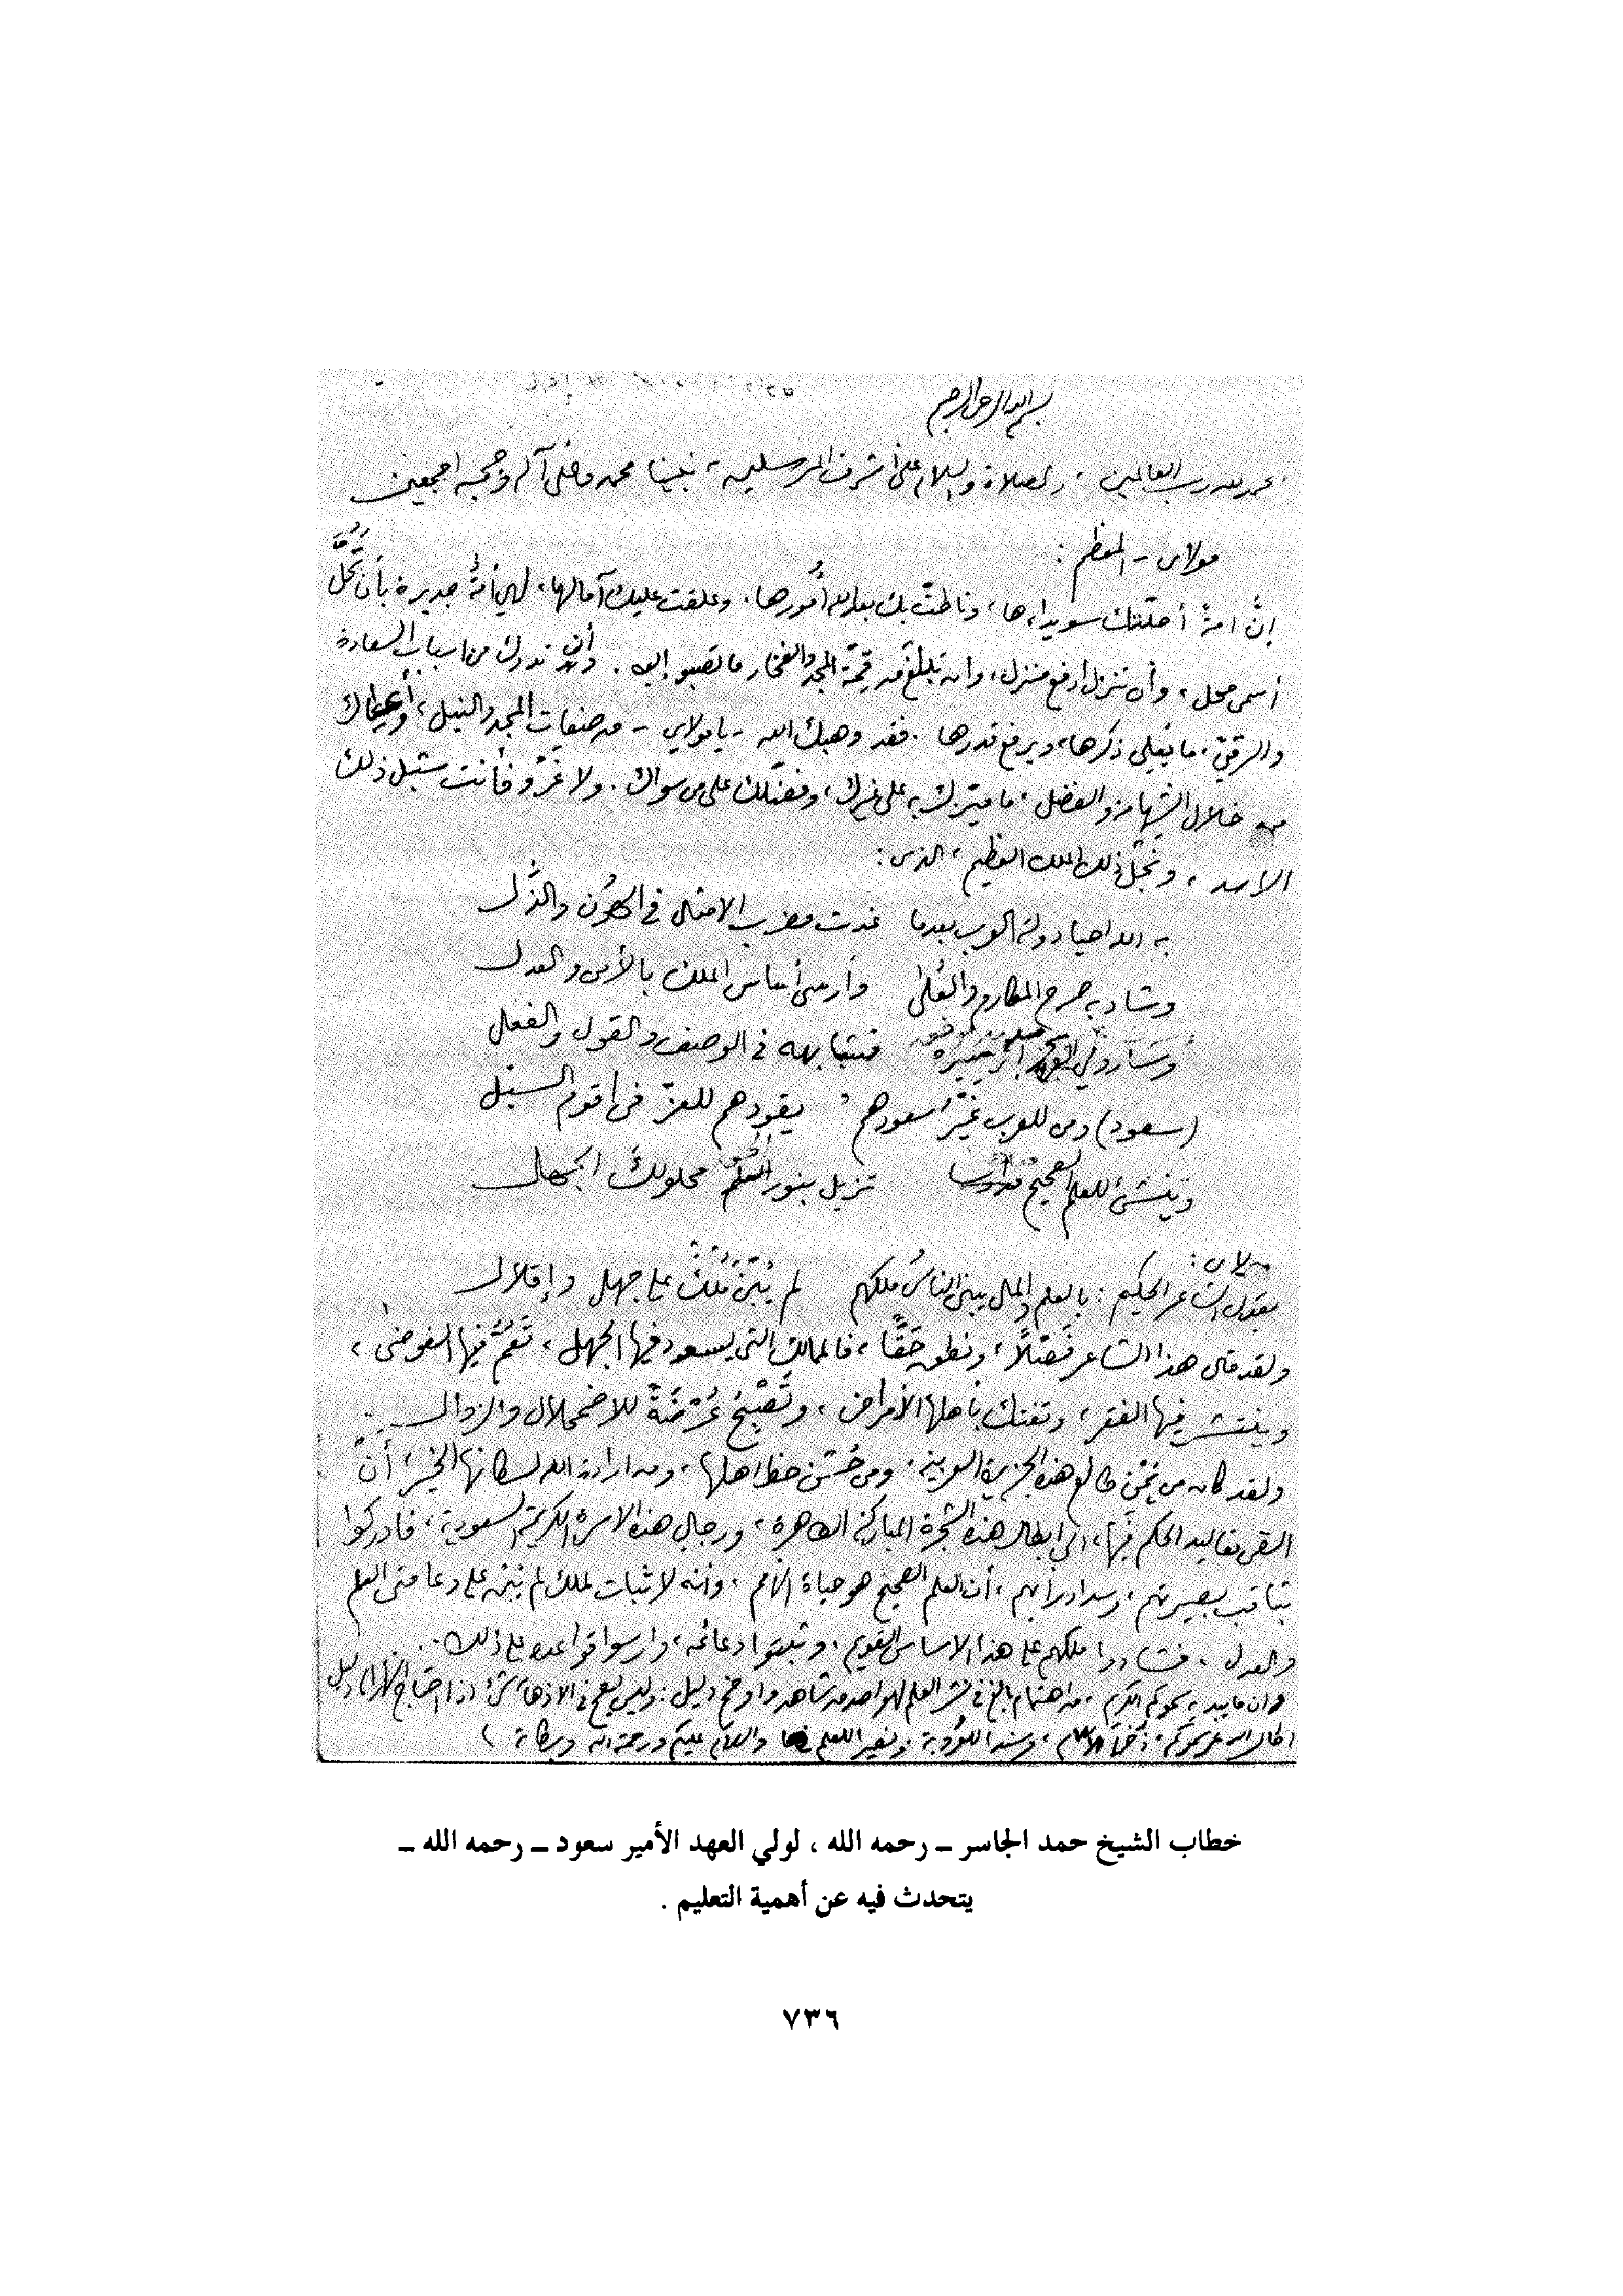 بسم الله الرحمن الرحيم
الحمد لله رب العالمين، والصلاة والسلام على أشرف المرسلين، نبينا محمد وعلى آله وصحبه اجمعين
مولاي - المعظم :
إنَّ امةً أحلّتك سويداءها، وناطتْ بك بعد الله أُمورها. وعلقت عليك آمالها، لهي أمةٌ جديرة بأن تحل
أسمى محل، وأن تنزل ارفع منزل، وان تبلغ من قمة المجد والفخار ما تصبو إليه. وأن تدرك من اسباب السعادة
والرقيّ، ما يعلي ذكرها، ويرفع قدرها. فقد وهبك الله - يا مولاي - من صفات المجد والنبل، وأعطاك
من خلال الشهامة والفضل، ما ميّزك به على غيرك، وفضلك على من سواك. ولا غَرْو فأنت شبل ذلك
الأسد، ونجل ذلك الملك العظيم، الذي :
به الله احيا دولة العرب بعدما غدت مضرب الامثال في الهُون والذُّل
وشاد به صرح المكارم والعُلى وأرسى أساس الملك بالأمن والعدل
وسار وليّ العهد فشابهه في الوصف والقول والفعل
(سعود) ومن للعرب غيرُ سعودهم يقودهم للعزّ في اقوم السبل
وينشئ للعلم الصحيح تزيل بنور العلم محلولك الجهل
مولاي :
يقول الشاعر الحكيم : بالعلم والمال يبني الناسُ ملكهم لم يُبْنَ مُلْكٌ على جهل وإقلال
ولقد قال هذا الشاعر فَصْلاً، ونطق حَقًّا، فالممالك التي يسود فيها الجهل، تَعُمُّ فيها الفوضى،
وينتشر فيها الفقر، وتفتك بأهلها الأمراض، وتُصْبِحُ عُرْضَةً للاضمحلال والزوال ..
ولقد كان من يُمْن طالع هذه الجزيرة العربية، ومن حُسْن حظ اهلها، ومن ارادة الله لسكانها الخير، أنْ
ألقى تقاليد الحكم فيها، الى ابطال هذه الشجرة المباركة الطاهرة، ورجال هذه الاسرة الكريمة السعودية، فادركوا
بثاقب بصيرتهم، وسداد رايهم، أن العلم الصحيح هو حياة الامم، وأنه لا ثبات لملك لم يُبْنَ على دعامتى العلم
والعدل، فشادوا ملكهم على هذا الاساس القويم، وثبتوا دعائمه، وارسوا قواعده على ذلك ..
وان ما يبديه سموكم الكريم، من اهتمام بالغ في نشر العلم لهو اصدق شاهد واوضح دليل : وليس يصح في الاذهان شئ إذا احتاج النهار الى دليل
اطال الله عمر سموكم، ذُخرًا للاسلام، وسندا للعُروبة ونصيرا للعلم والسلام عليكم ورحمة الله وبركاته )
خطاب الشيخ حمد الجاسر ــ رحمه الله ، لولي العهد الأمير سعود ــ رحمه الله ــ
يتحدث فيه عن أهمية التعليم .
٧٣٦